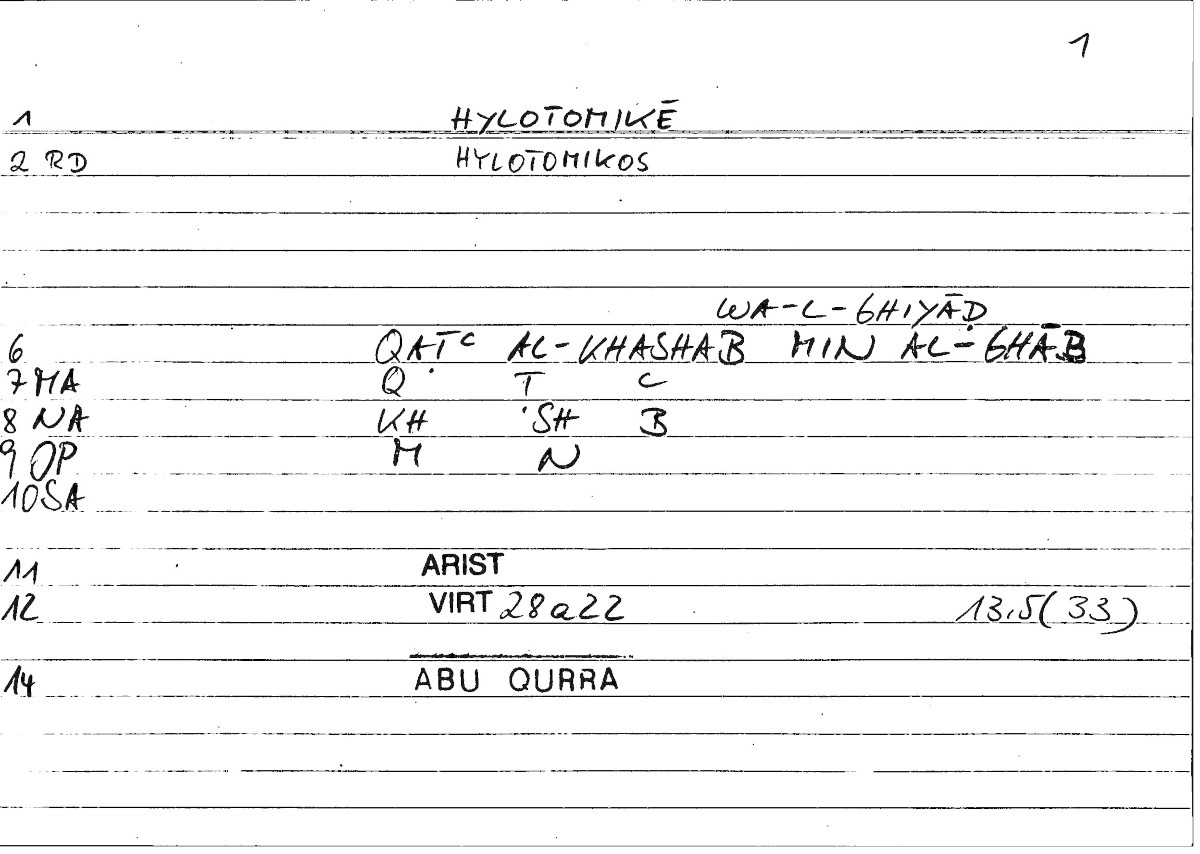 1
1 HYLOTOMIKĒ
2 RD HYLOTOMIKOS
WA-L-GHIYĀḌ
6 QAṬᶜ AL-KHASHAB MIN AL-GHĀB
7 MA Q Ṭ ᶜ
8 NA KH SH B
9 OP M N
10 SA
11 ARIST
12 VIRT 28a22 13,5(33)
14 ABU QURRA